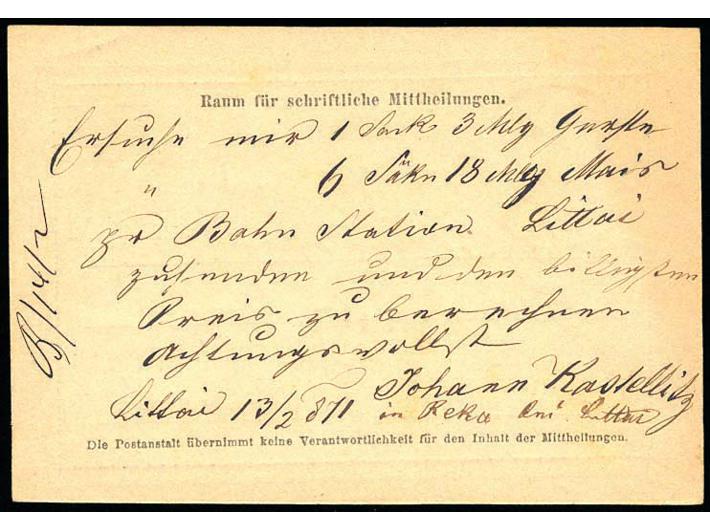 Raum für schriftliche Mittheilungen.
Ersuche mir 1 Sack 3 Mtz Gerste
" 6 Säke 18 Mtz Mais
pr Bahn Station Littai
zusenden und den billigsten
Preis zu berechnen
Achtungsvollst
Johann Kastellitz
Littai 13/2 871 in Reka bei Littai
Die Postanstalt übernimmt keine Verantwortlichkeit für den Inhalt der Mittheilungen.
B/14/2